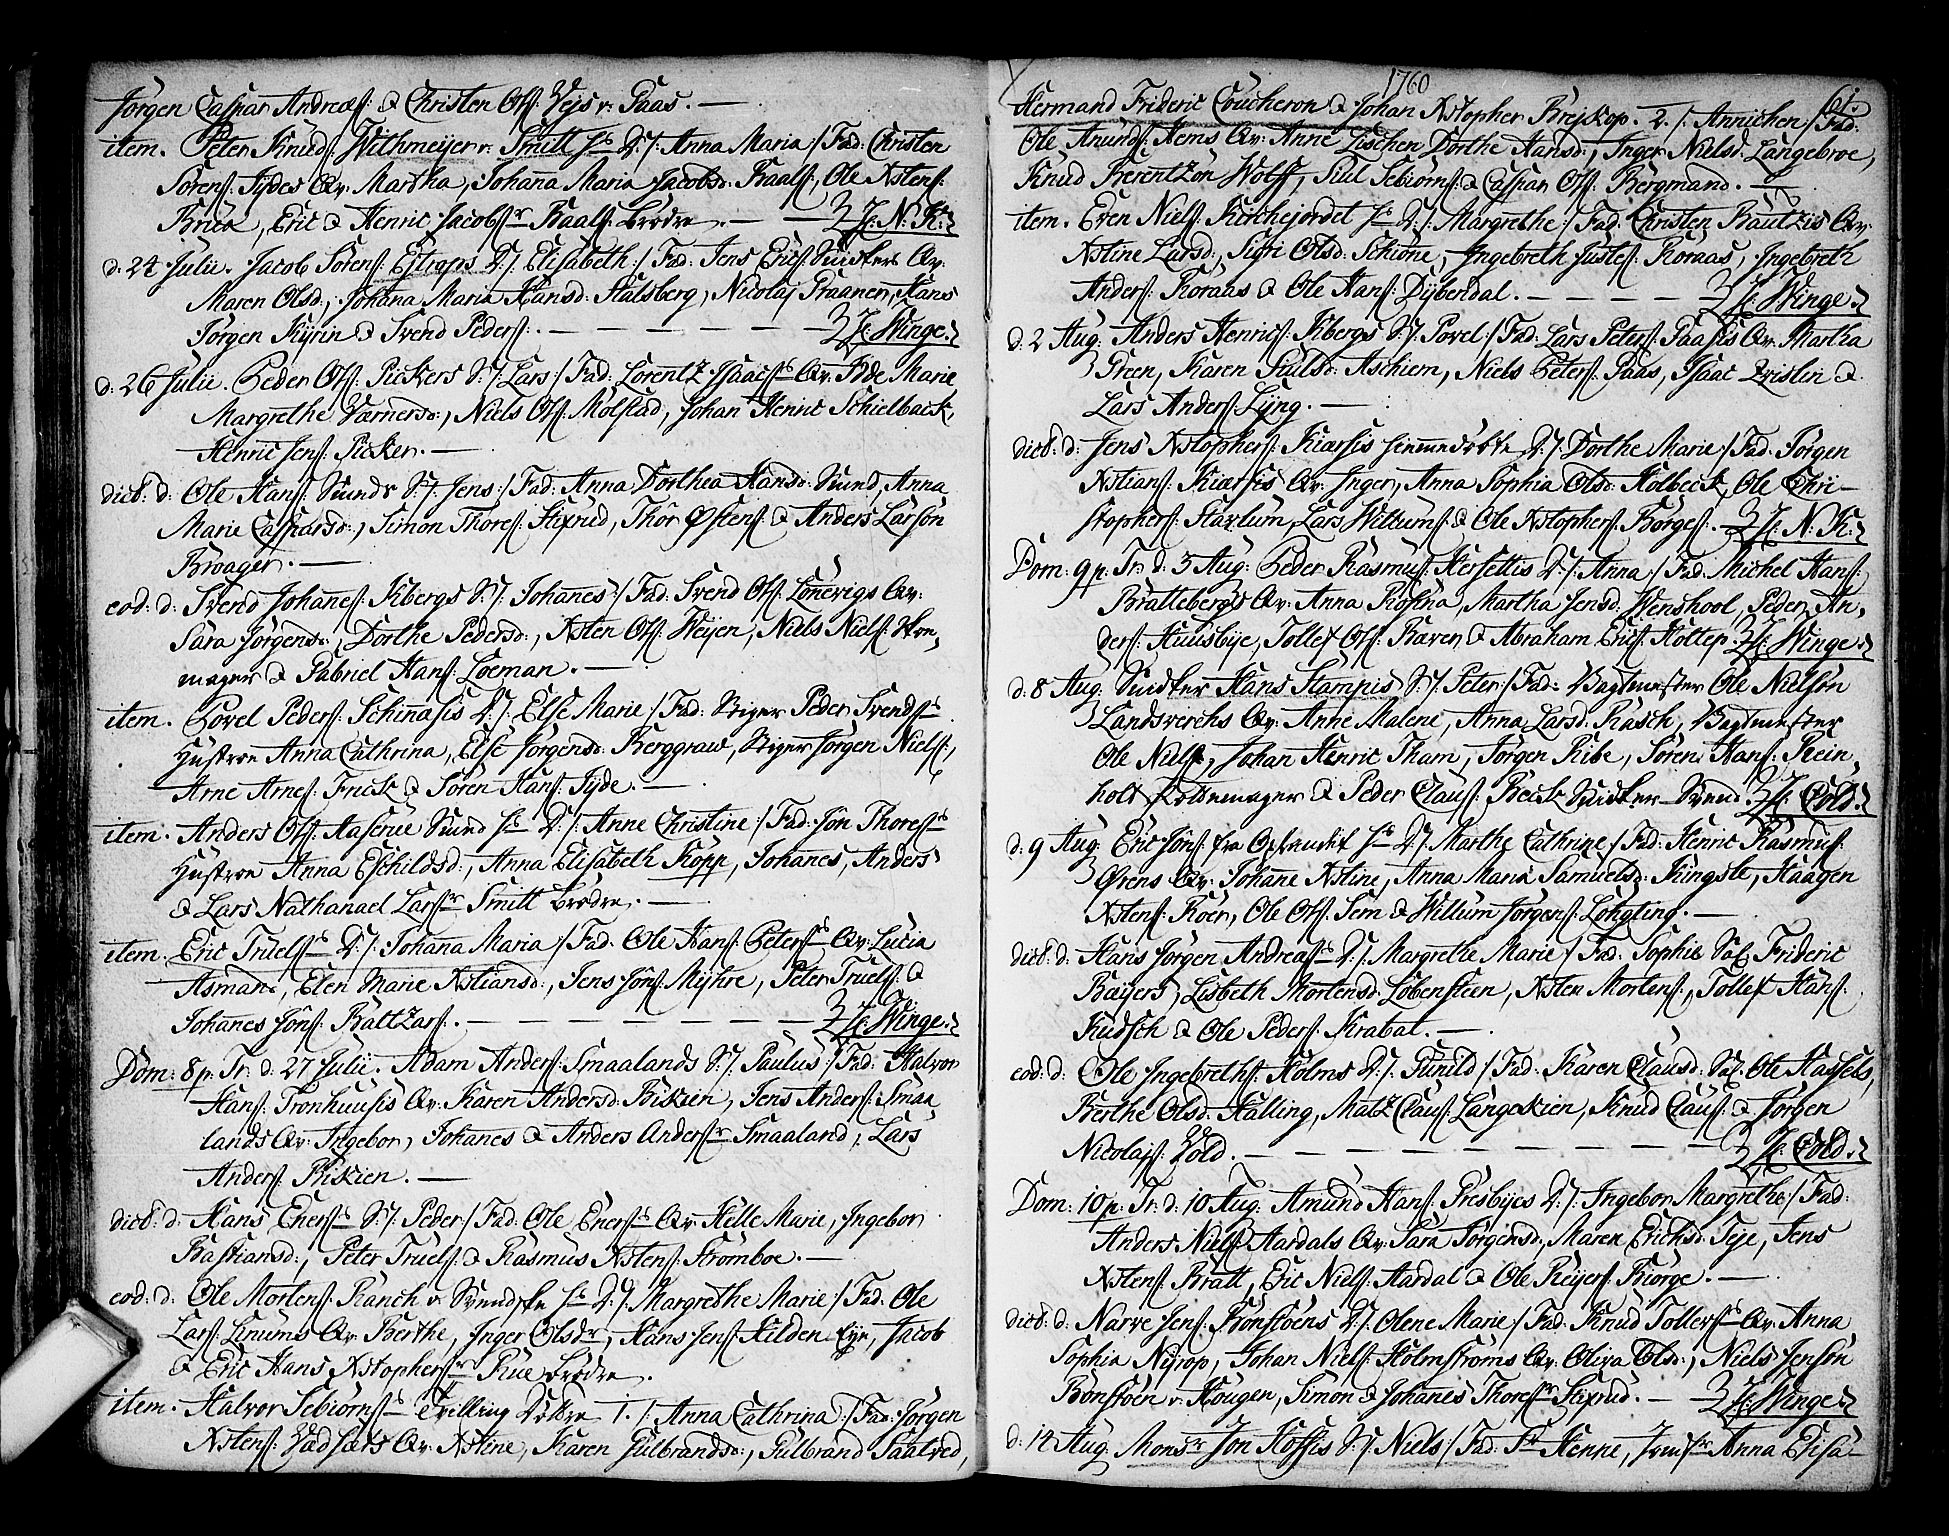 Jörgen Caspar Andreæs: & Christen Ols: Vejs v. Paas. —
item. Peter Knuds: Withmeijer v. Smitt hs D:/: Anna Maria /: Fad: Christen
Sörens: Jydes Qv: Martha, Johana Maria Jacobsd: Raals:, Ole Xstens:
Brua, Eric & Henric Jacobssr Raals: brödre. — — H: N: K:
d. 24 Julii. Jacob Sörens: Estrops D:/: Elisabeth /: Fad: Jens Erics: Qv:
Maren Olsd:, Johana Maria Hansd: Stalsberg, Nicolaj Praanen, Hans
Jörgen Kyrin & Svend Peders: — — — — — H: Winge
d. 26 Julii. Peder Ols: Pickers S:/: Lars /: Fad: Lorentz Isaacss Qv: Marie
Margrethe Værnersd:, Niels Ols: Molstad, Johan Henric Schielback,
Henric Jens: Picker. —
dict: d: Ole Hans: Sunds S:/: Jens /: Fad: Anna Dorthea Hansd: Sund, Anna
Marie Caspersd:, Simon Thores: Stixrud, Thor Østens: & Anders Larsön
Broager. —
eod: d: Svend Johanes: Kbergs S:/: Johanes /: Fad: Svend Ols: Lönerigs Qv:
Sara Jörgensd:, Dorthe Pedersd:, Xsten Ols: Weijen, Niels Niels:
mager & Gabriel Hans: Loeman. —
item. Povel Peders: Schinasis D:/: Else Marie /: Fad: Stiger Peder Svendss
Hustroe Anna Cathrina, Else Jörgensd: Berggraw, Stiger Jörgen Niels:,
Arne Arnes: Frick & Sören Hans: Jyde. —
item. Anders Ols: Aaserue Sund hs D:/: Anne Christine /: Fad: Jon Thoress
Hustroe Anna Eschildsd:, Anna Elisabeth Kopp, Johanes, Anders
& Lars Nathanael Larssr Smitt brödre. —
item. Eric Truelss D:/: Johana Maria /: Fad: Ole Hans: Peterss Qv: Lucia
Asmand, Elen Marie Xstiansd:, Jens Jöns: Myhre, Peter Truels: &
Johanes Jöns: Baltzars: — — — — — H: Winge
Dom: 8 p. Tr. d. 27 Julii. Adam Anders: Smaalands S:/: Paulus /: Fad: Halvor
Hans: Tronhuusis Qv: Karen Andersd: Biskien, Jens Anders: Smaa
lands Qv: Ingebor, Johanes & Anders Anderssr Smaaland, Lars
Anders: Biskien. —
dict: d: Hans Enerss S:/: Peder /: Fad: Ole Enerss Qv: Helle Marie, Ingebor
Bastiansd:, Peter Truels: & Rasmus Xstens: Strömboe. —
eod: d: Ole Mortens: Ranch v. hs D:/: Margrethe Marie /: Fad: Ole
Lars: Linums Qv: Berthe, Inger Olsdr, Hans Jens: Kilden, Jacob
& Eric Hans Xstopherssr Rue brödre.
item. Halvor Sebiörnss Tvilling Döttre 1./: Anna Cathrina /: Fad: Jörgen
Xstens: Vadsæts Qv: Xstine, Karen Gulbrandsd:, Gulbrand Saatved,
1760
61.
Hermand Frideric Coucheron & Johan Xstopher Brejskop. 2./: Annichen /: Fad:
Ole Amunds: Hems Qv: Anne Lischen Dorthe Hansd:, Inger Nielsd: Langebroe,
Knud Berentzön Wolff, Siul Sebiörns: & Caspar Ols: Bergmand. —
item. Even Niels: Kirchejordet hs D:/: Margrethe /: Fad: Christen Bautzis Qv:
Xstine Larsd:, Sigri Olsd: Schione, Ingebreth Justes: Koraas, Ingebreth
Anders: Koraas & Ole Hans: Dybendal. — — — — — H: Winge
d. 2 Aug: Anders Henrics: Kbergs S:/: Povel /: Fad: Lars Peters: Paasis Qv: Martha
Green, Karen Pålsd: Aschiem, Niels Peters: Paas, Isaac Qvislin &
Lars Anders: Lyng. —
dict: d: Jens Xstophers: Kiærsis hiemedöbte D:/: Dorthe Marie /: Fad: Jörgen
Xstians: Kiærsis Qv: Inger, Anna Sophia Olsd: Holbeck, Ole Chri-
stophers: Starlum, Lars Willums: & Ole Xstophers: Börges: — H: N: K:
Dom: 9 p. Tr: d: 3 Aug: Peder Rasmus: Hersettis D:/: Anna /: Fad: Michel Hans:
Brattebergs Qv: Anna Rosina, Martha Jensd: Wenskool, Peder An,
ders: Huusbye, Tollef Ols: Raven & Abraham Erics: Holter. H: Winge
d. 8 Aug: Hans Stampis S:/: Peter /: Fad: Vagtmester Ole Nielsön
Landsverchs Qv: Anne Malene, Anna Larsd: Rasch, Vagtmester
Ole Niels:, Johan Henric Tham, Jörgen Ribe, Sören Hans: Rein,
holt & Peder Claus: Beck H: Cold
d. 9 Aug: Eric Jöns: fra hs D:/: Marthe Cathrine /: Fad: Henric Rasmus:
Örens Qv: Johane Xstine, Anna Maria Samuelsd: Kungsle, Haagen
Xstens: Köer, Ole Ols: Sem & Willum Jörgens: Löngting. —
dict: d: Hans Jörgen Andreass D:/: Margrethe Marie /: Fad: Sophie Sal: Frideric
Baijers, Lisbeth Mortensd: Löbensteen, Xsten Mortens:, Tollef Hans:
Kudsch & Ole Peders: Krabat. —
eod: d: Ole Ingebreths: Holms D:/: Gunild /: Fad: Karen Clausd: Sal: Ole Hassels,
Berthe Olsd: Halling, Matz Claus: Langeskien, Knud Claus: & Jörgen
Nicolajs: Wold. — — — — — — — H: Cold
Dom: 10 p. Tr: d: 10 Aug: Amund Hans: Presbyes D:/: Ingebor Margrethe /: Fad:
Anders Niels: Aardals Qv: Sara Jörgensd:, Maren Erichsd: Teje, Jens
Xstens: Bratt, Eric Niels: Aardal & Ole Reijers: Biorge. —
dict: d: Narve Jens: Bonstöens D:/: Olene Marie /: Fad: Knud Tollerss Qv: Anna
Sophia Nyrop, Johan Niels: Holmströms Qv: Oliva Olsd:, Niels Jensön
Bonstöen v. Hougen, Simon & Johanes Thoressr Stixrud. — H: Winge
d. 14 Aug: Monsr Jon Hoffis S:/: Niels /: Fad: Fr Henne, Jomfr Anna Elisa-